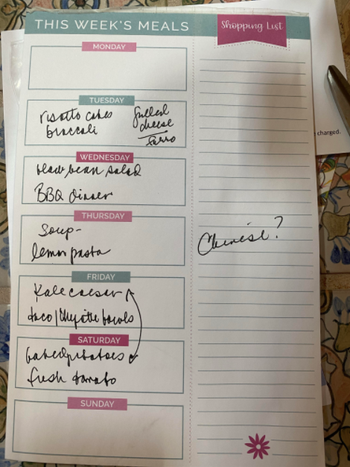 THIS WEEK'S MEALS
Shopping List
MONDAY
TUESDAY
risotto cakes
broccoli
grilled
cheese
WEDNESDAY
black bean salad
BBQ dinner
THURSDAY
Soup-
lemon pasta
Chinese?
FRIDAY
Kale caesar
taco/ bowls
SATURDAY
baked potatoes
fresh tomato
SUNDAY
charged.